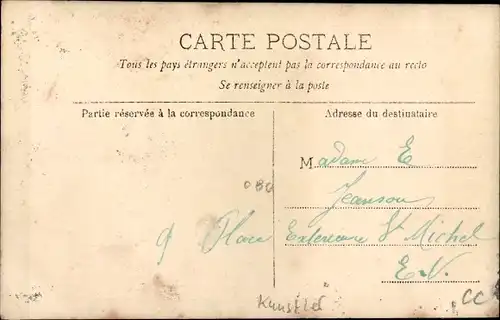 CARTE POSTALE
Tous les pays étrangers n'acceptent pas la correspondance au recto
Se renseigner à la poste
Partie réservée à la correspondance
Adresse du destinataire
Madame E
Jeanson
9 Place Exterieure St Michel
E.V.
Künstler
CC